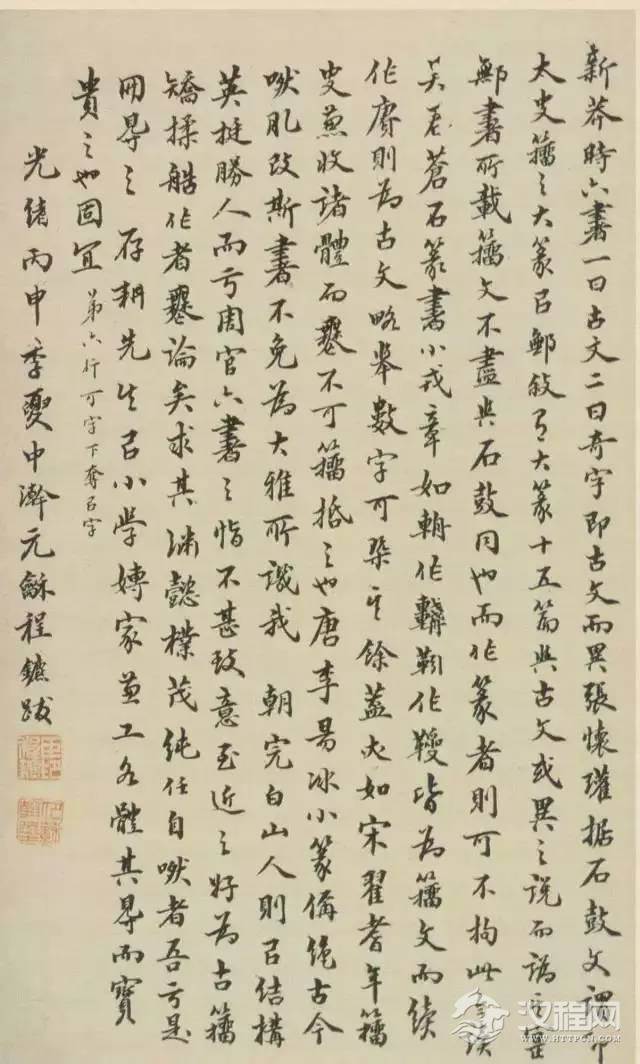 新莽時六書一曰古文二曰奇字即古文而異張懷瓘据石鼓文謂
太史籀之大篆㠯鄦敘大篆十五篇與古文或異之説而譌
鄦書所載籀文不盡與石鼓同也而作篆者則可不拘此
吴石蒼石篆書小戎章如輈作鞃作皆為籀文而續
作賡則為古文略舉數字可㮣其餘蓋如宋翟耆年籀
史兼收諸體而不可籀抵之也唐李昜冰小篆偁絶古今
肰肊改斯書不免為大雅所譏我 朝完白山人則㠯結構
英挺勝人而于周官六書之恉不甚致意至近之好為古籀
矯揉作者論矣求其淵懿樸茂純任自肰者吾于是
冊㝵之 存耕先生㠯小學專家兼工各體其㝵而寶
貴之也固宜 第六行可字下奪㠯字
光緒丙申季夏中澣元龢程跋
汉程网
HTTPCN.COM